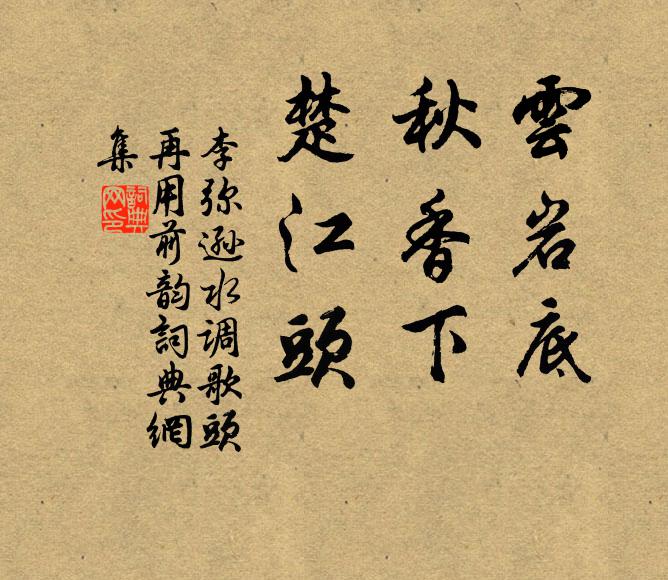 雲岩底
秋香下
楚江頭
李弥遜水调歌頭
再用前韵詞典網
集
詞典
网印